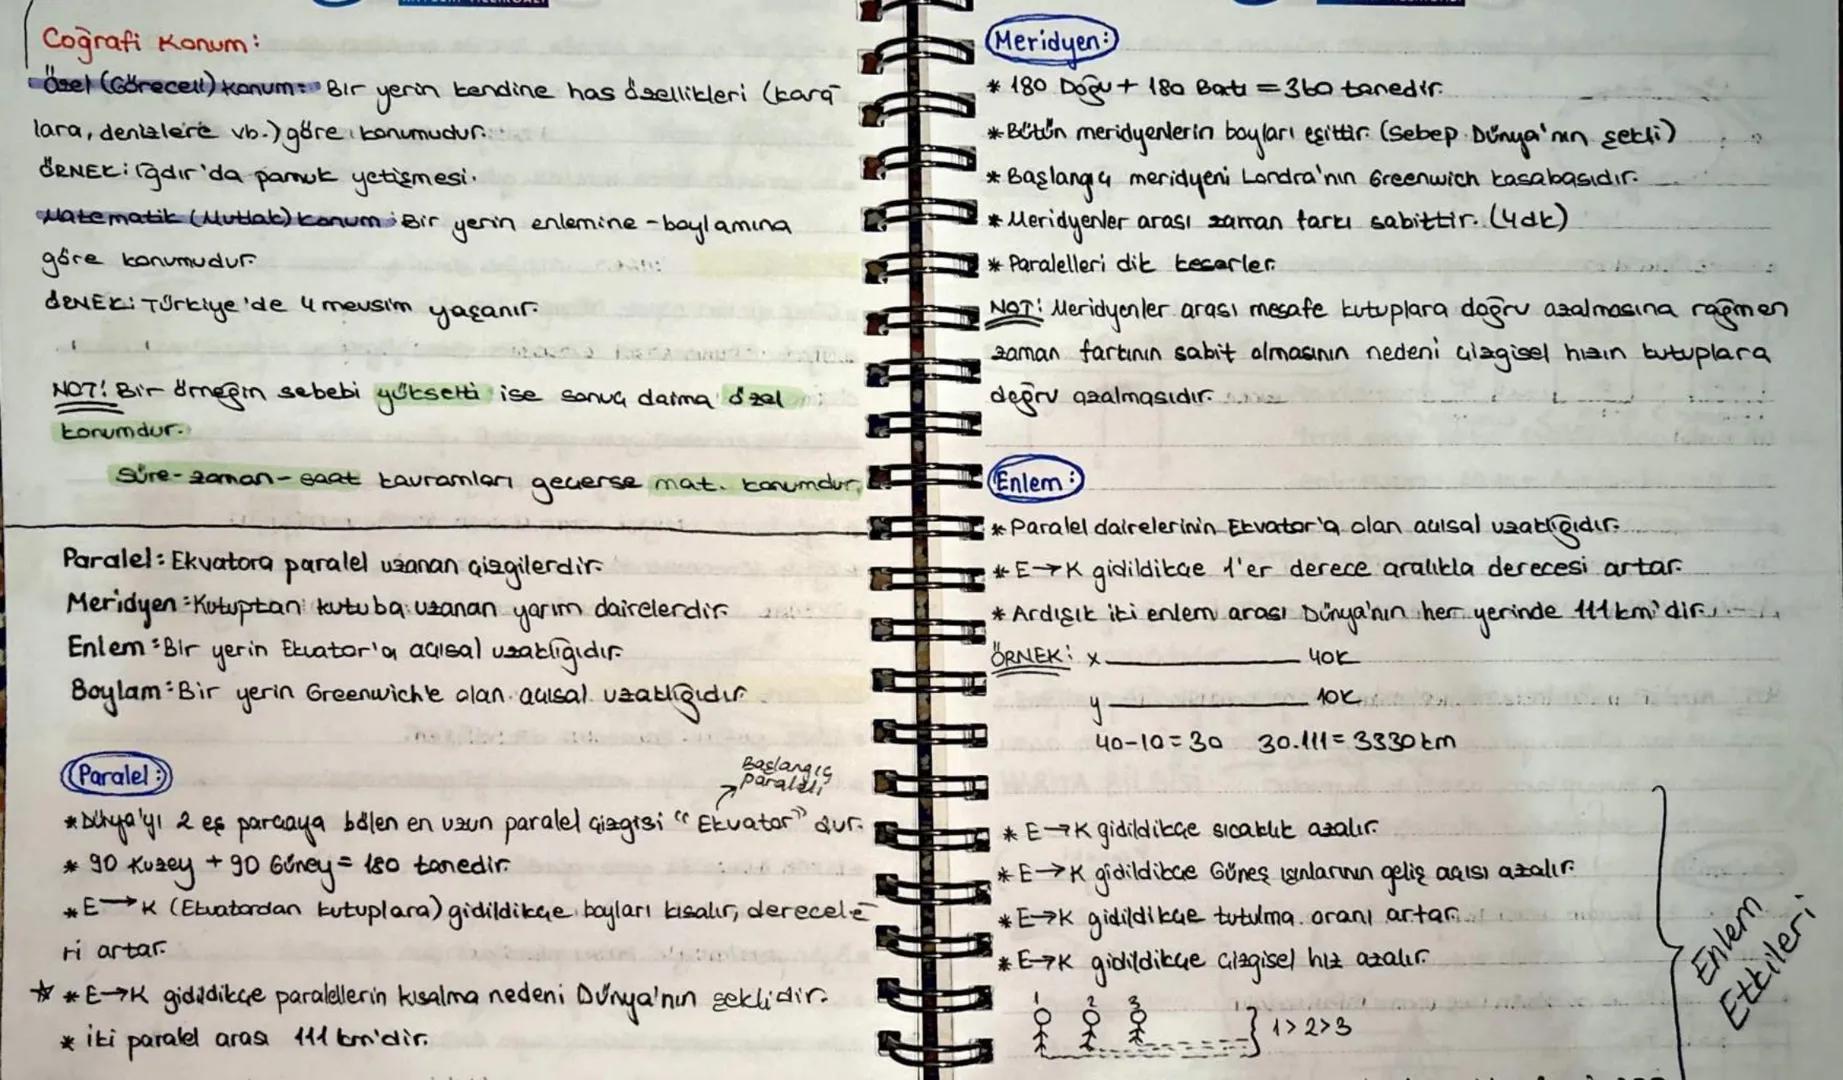 Coğrafi Konum:
Özel (Göreceli) konum: Bir yerin kendine has özellikleri (kara
lara, denizlere vb.) göre konumudur.
ÖRNEK: Iğdır'da pamuk yetişmesi.
Matematik (Mutlak) konum: Bir yerin enlemine-boylamına
göre konumudur.
ÖRNEK: Türkiye'de 4 mevsim yaşanır.
NOT: Bir örneğin sebebi yükselti ise sonuç daima özel
konumdur.
Süre-zaman-saat kavramları geçerse mat. konumdur.
Paralel: Ekvatora paralel uzanan çizgilerdir.
Meridyen: Kutuptan kutuba uzanan yarım dairelerdir.
Enlem: Bir yerin Ekvator'a açısal uzaklığıdır.
Boylam: Bir yerin Greenwich'e olan açısal uzaklığıdır.
Paralel:
Başlangıç
paraleli
* Dünya'yı 2 eş parçaya bölen en uzun paralel çizgisi "Ekvator" dur.
* 90 Kuzey + 90 Güney = 180 tanedir.
* E→K (Ekvatordan kutuplara) gidildikçe boyları kısalır, derecele
ri artar.
☆ * E→K gidildikçe paralellerin kısalma nedeni Dünya'nın şeklidir.
* İki paralel arası 111 km'dir.
Meridyen:
* 180 Doğu + 180 Batı = 360 tanedir.
* Bütün meridyenlerin boyları eşittir. (Sebep Dünya'nın şekli)
* Başlangıç meridyeni Londra'nın Greenwich kasabasıdır.
* Meridyenler arası zaman farkı sabittir. (4dk)
* Paralelleri dik keserler.
NOT: Meridyenler arası mesafe kutuplara doğru azalmasına rağmen
zaman farkının sabit olmasının nedeni çizgisel hızın kutuplara
doğru azalmasıdır.
Enlem:
* Paralel dairelerinin Ekvator'a olan açısal uzaklığıdır.
* E→K gidildikçe 1'er derece aralıkla derecesi artar.
* Ardışık iki enlem arası Dünya'nın her yerinde 111 km'dir.
ÖRNEK: x 40K
y 10K
40-10=30 30.111=3330 km
* E→K gidildikçe sıcaklık azalır.
* E→K gidildikçe Güneş ışınlarının geliş açısı azalır.
* E→K gidildikçe tutulma oranı artar.
* E→K gidildikçe çizgisel hız azalır.
1 2 3
} 1>2>3
Enlem
Etkileri